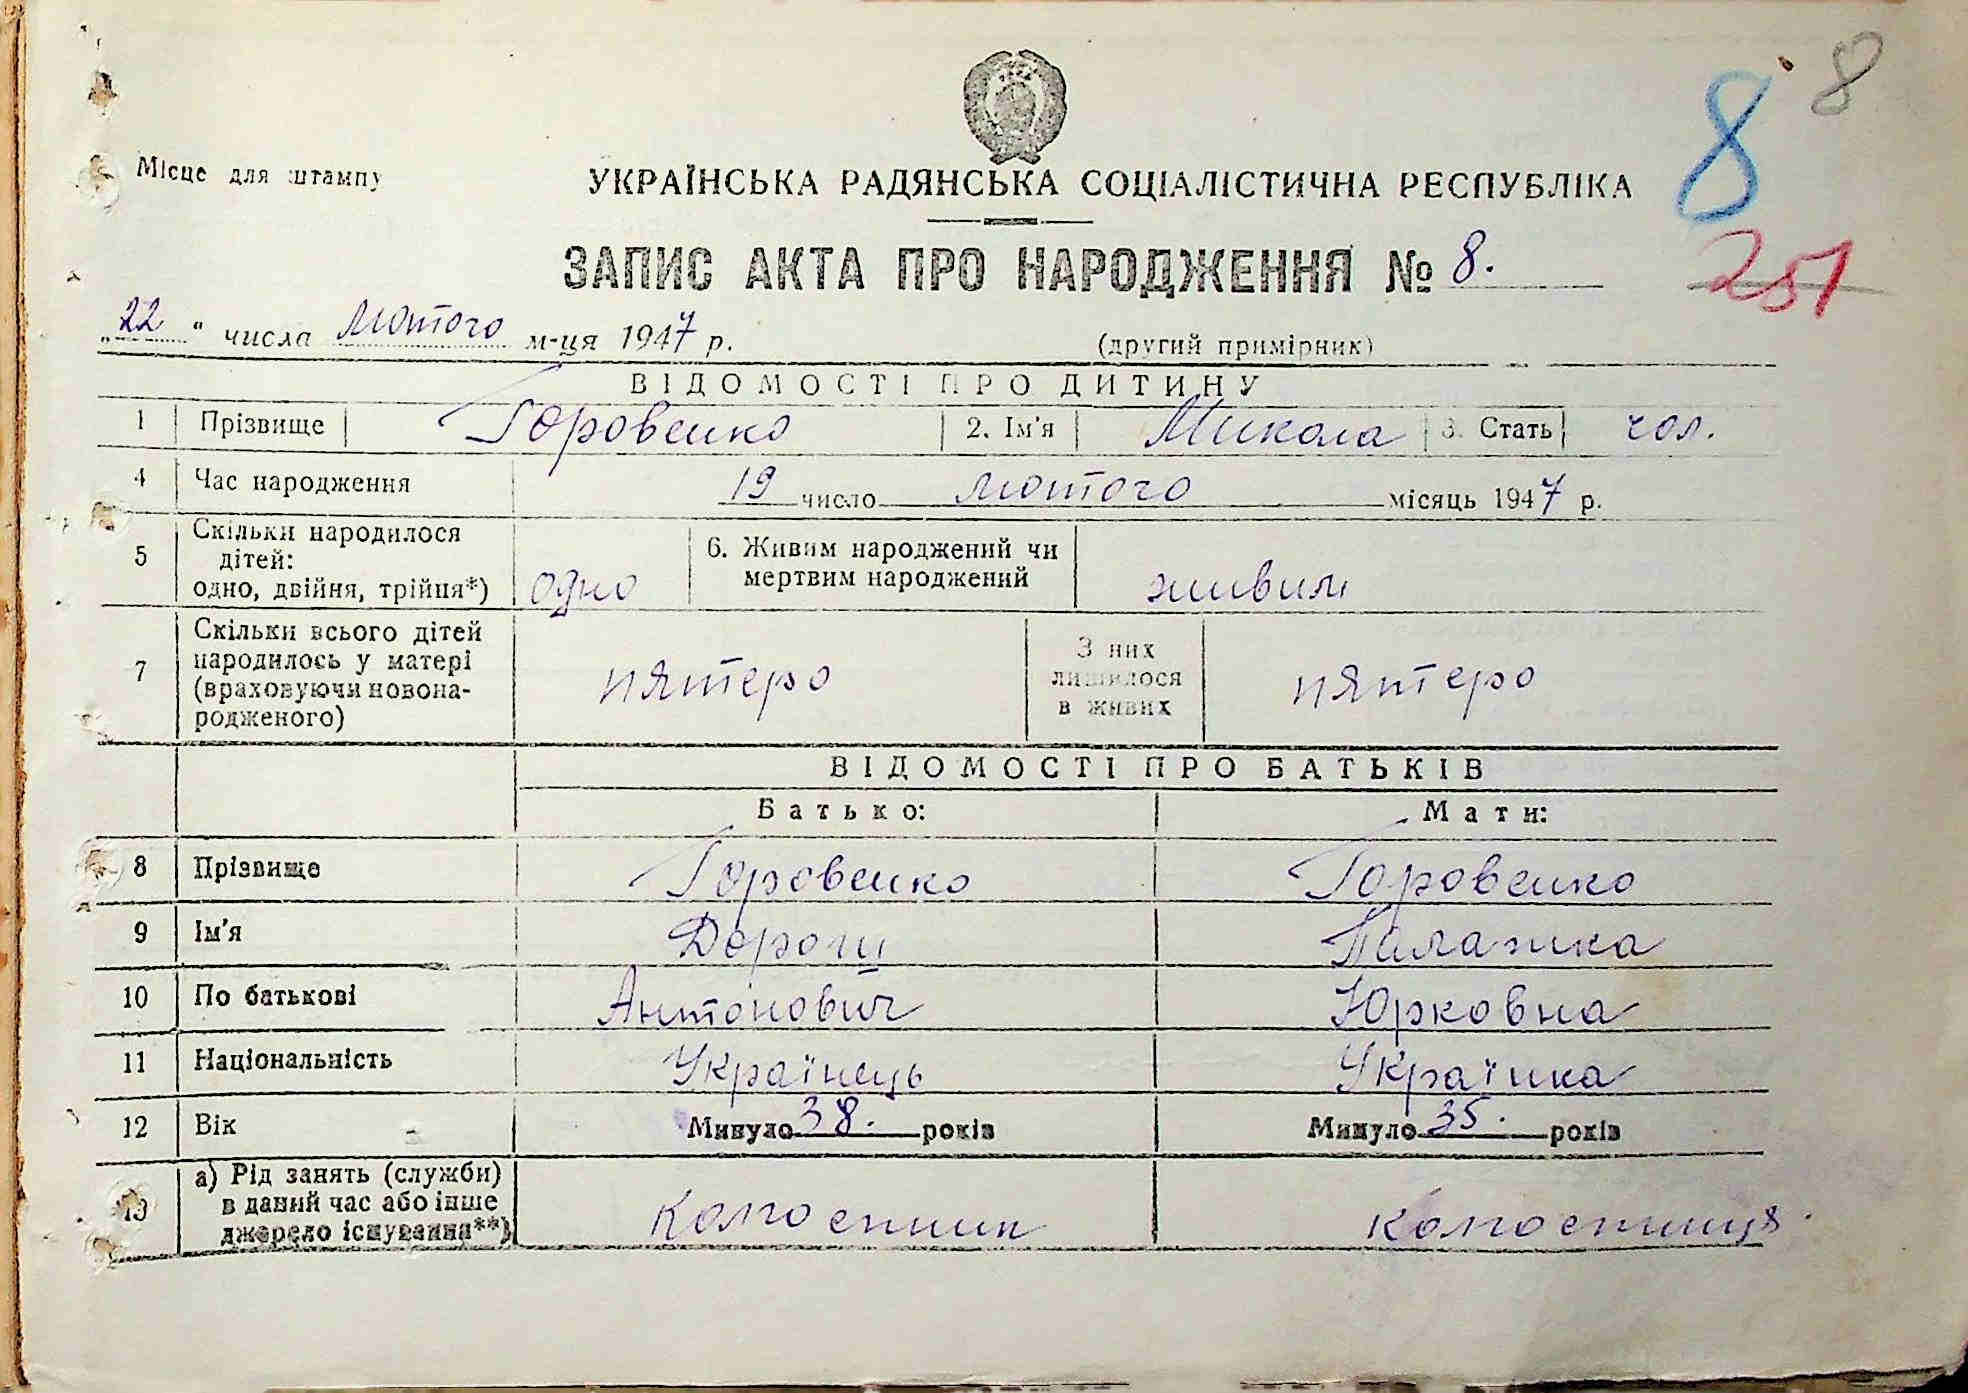 8 8
Місце для штампу
УКРАЇНСЬКА РАДЯНСЬКА СОЦІАЛІСТИЧНА РЕСПУБЛІКА
ЗАПИС АКТА ПРО НАРОДЖЕННЯ № 8.
251
„22" числа лютого м-ця 1947 р. (другий примірник)
ВІДОМОСТІ ПРО ДИТИНУ
1 Прізвище Горовенко 2. Ім'я Микола 3. Стать чол.
4 Час народження 19 число лютого місяць 1947 р.
5 Скільки народилося дітей: одно, двійня, трійня*) одно 6. Живим народжений чи мертвим народжений живим
7 Скільки всього дітей народилось у матері (враховуючи новонародженого) пятеро З них лишилося в живих пятеро
ВІДОМОСТІ ПРО БАТЬКІВ
Батько: Мати:
8 Прізвище Горовенко Горовенко
9 Ім'я Дорош Палажка
10 По батькові Антонович Юрковна
11 Національність Українець Українка
12 Вік Минуло 38. років Минуло 35. років
13 а) Рід занять (служби) в даний час або інше джерело існування**) Колгоспник колгоспниця.